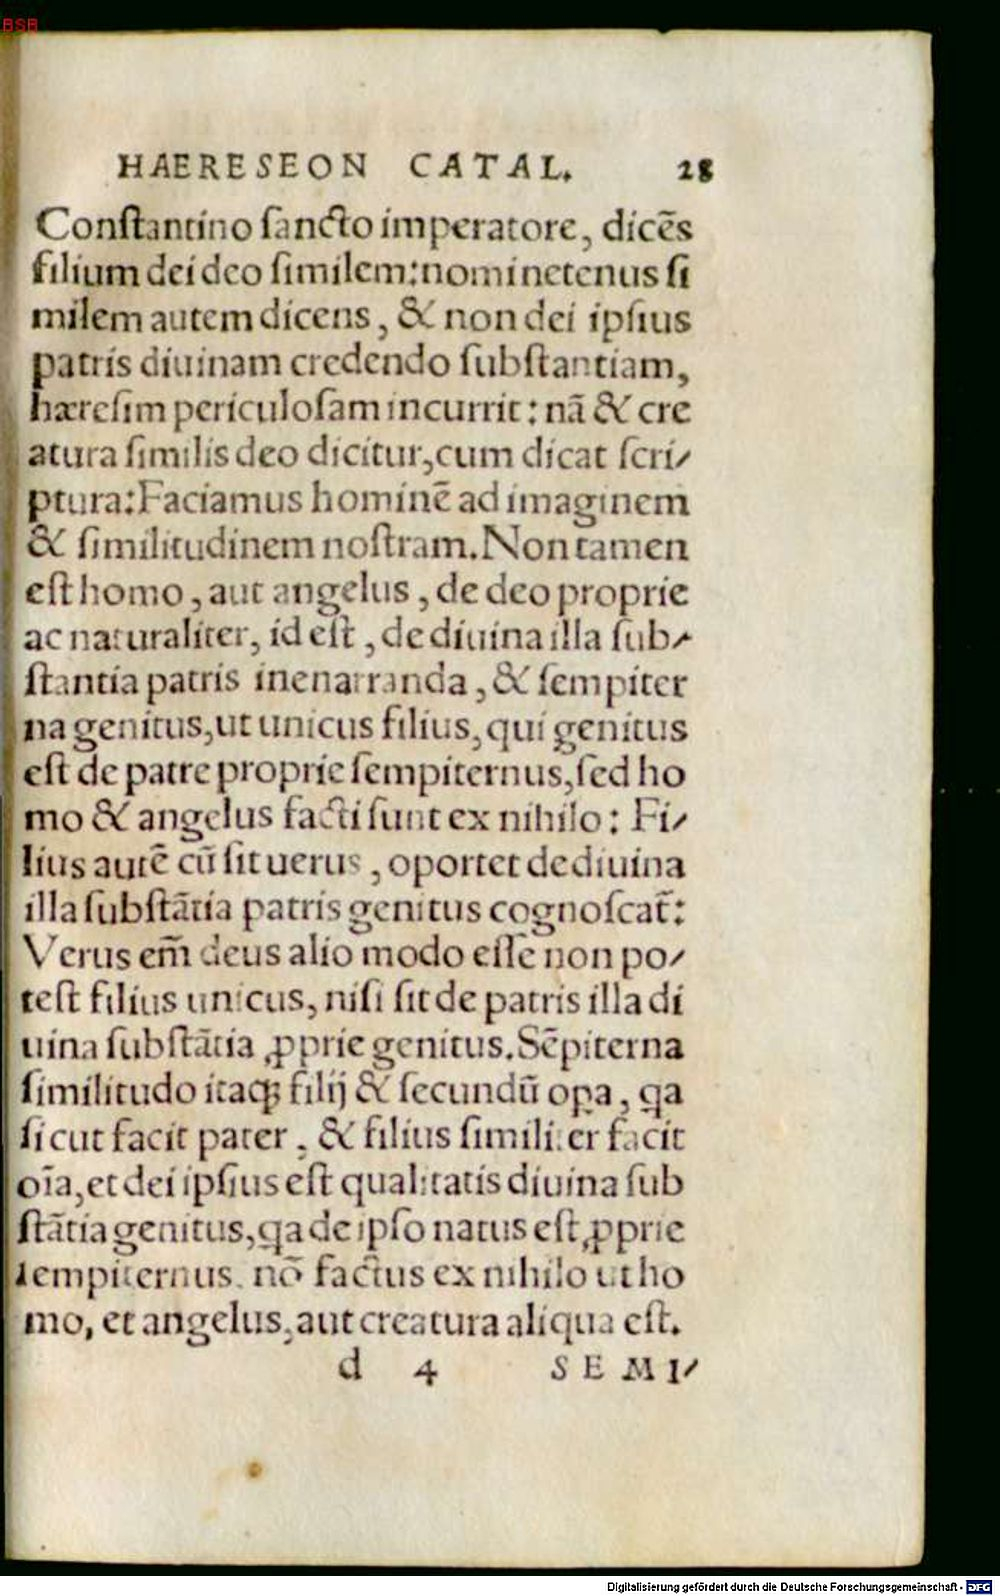 BSB
HAERESEON CATAL. 28
Conſtantino ſancto imperatore, dicēs
filium dei deo ſimilem: nominetenus ſi
milem autem dicens, & non dei ipſius
patris diuinam credendo ſubſtantiam,
hæreſim periculoſam incurrit: nā & cre
atura ſimilis deo dicitur, cum dicat ſcri/
ptura: Faciamus hominē ad imaginem
& ſimilitudinem noſtram. Non tamen
eſt homo, aut angelus, de deo proprie
ac naturaliter, id eſt, de diuina illa ſub/
ſtantia patris inenarranda, & ſempiter
na genitus, ut unicus filius, qui genitus
eſt de patre proprie ſempiternus, ſed ho
mo & angelus facti ſunt ex nihilo: Fi/
lius autē cū ſit uerus, oportet de diuina
illa ſubſtātia patris genitus cognoſcat̃:
Verus em̃ deus alio modo eſſe non po/
teſt filius unicus, niſi ſit de patris illa di
uina ſubſtātia ꝓprie genitus. Sēpiterna
ſimilitudo itaqꝫ filij & ſecundū oꝑa, qa
ſicut facit pater, & filius ſimiliter facit
oīa, et dei ipſius eſt qualitatis diuina ſub
ſtātia genitus, qa de ipſo natus eſt ꝓprie
ſempiternus. nō factus ex nihilo ut ho
mo, et angelus, aut creatura aliqua eſt.
d 4 SEMI/
Digitalisierung gefördert durch die Deutsche Forschungsgemeinschaft - DFG